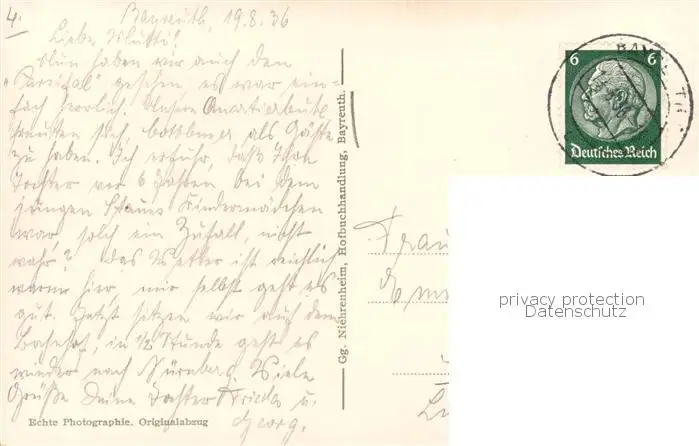 4.
Bayreuth, 19.8.36
Liebe Mutti!
Nun haben wir auch den
„Parsifal" gesehen, es war ein-
fach herrlich. Unsere Quartierleute
freuten sich, als Gäste
zu haben. Ich erfuhr, daß Ihre
Tochter vor 6 Jahren bei dem
jungen Kindermädchen
war, solch ein Zufall, nicht
wahr? Das Wetter ist reichlich
warm hier, mir selbst geht es
gut. Jetzt sitzen wir auf dem
Bahnhof, in ½ Stunde geht es
wieder nach Nürnberg. Viele
Grüße Deine Tochter Frieda u.
Georg.
Echte Photographie. Originalabzug
Gg. Niehrenheim, Hofbuchhandlung, Bayreuth.
6 6
Deutsches Reich
BAY TH
Frau
privacy protection
Datenschutz